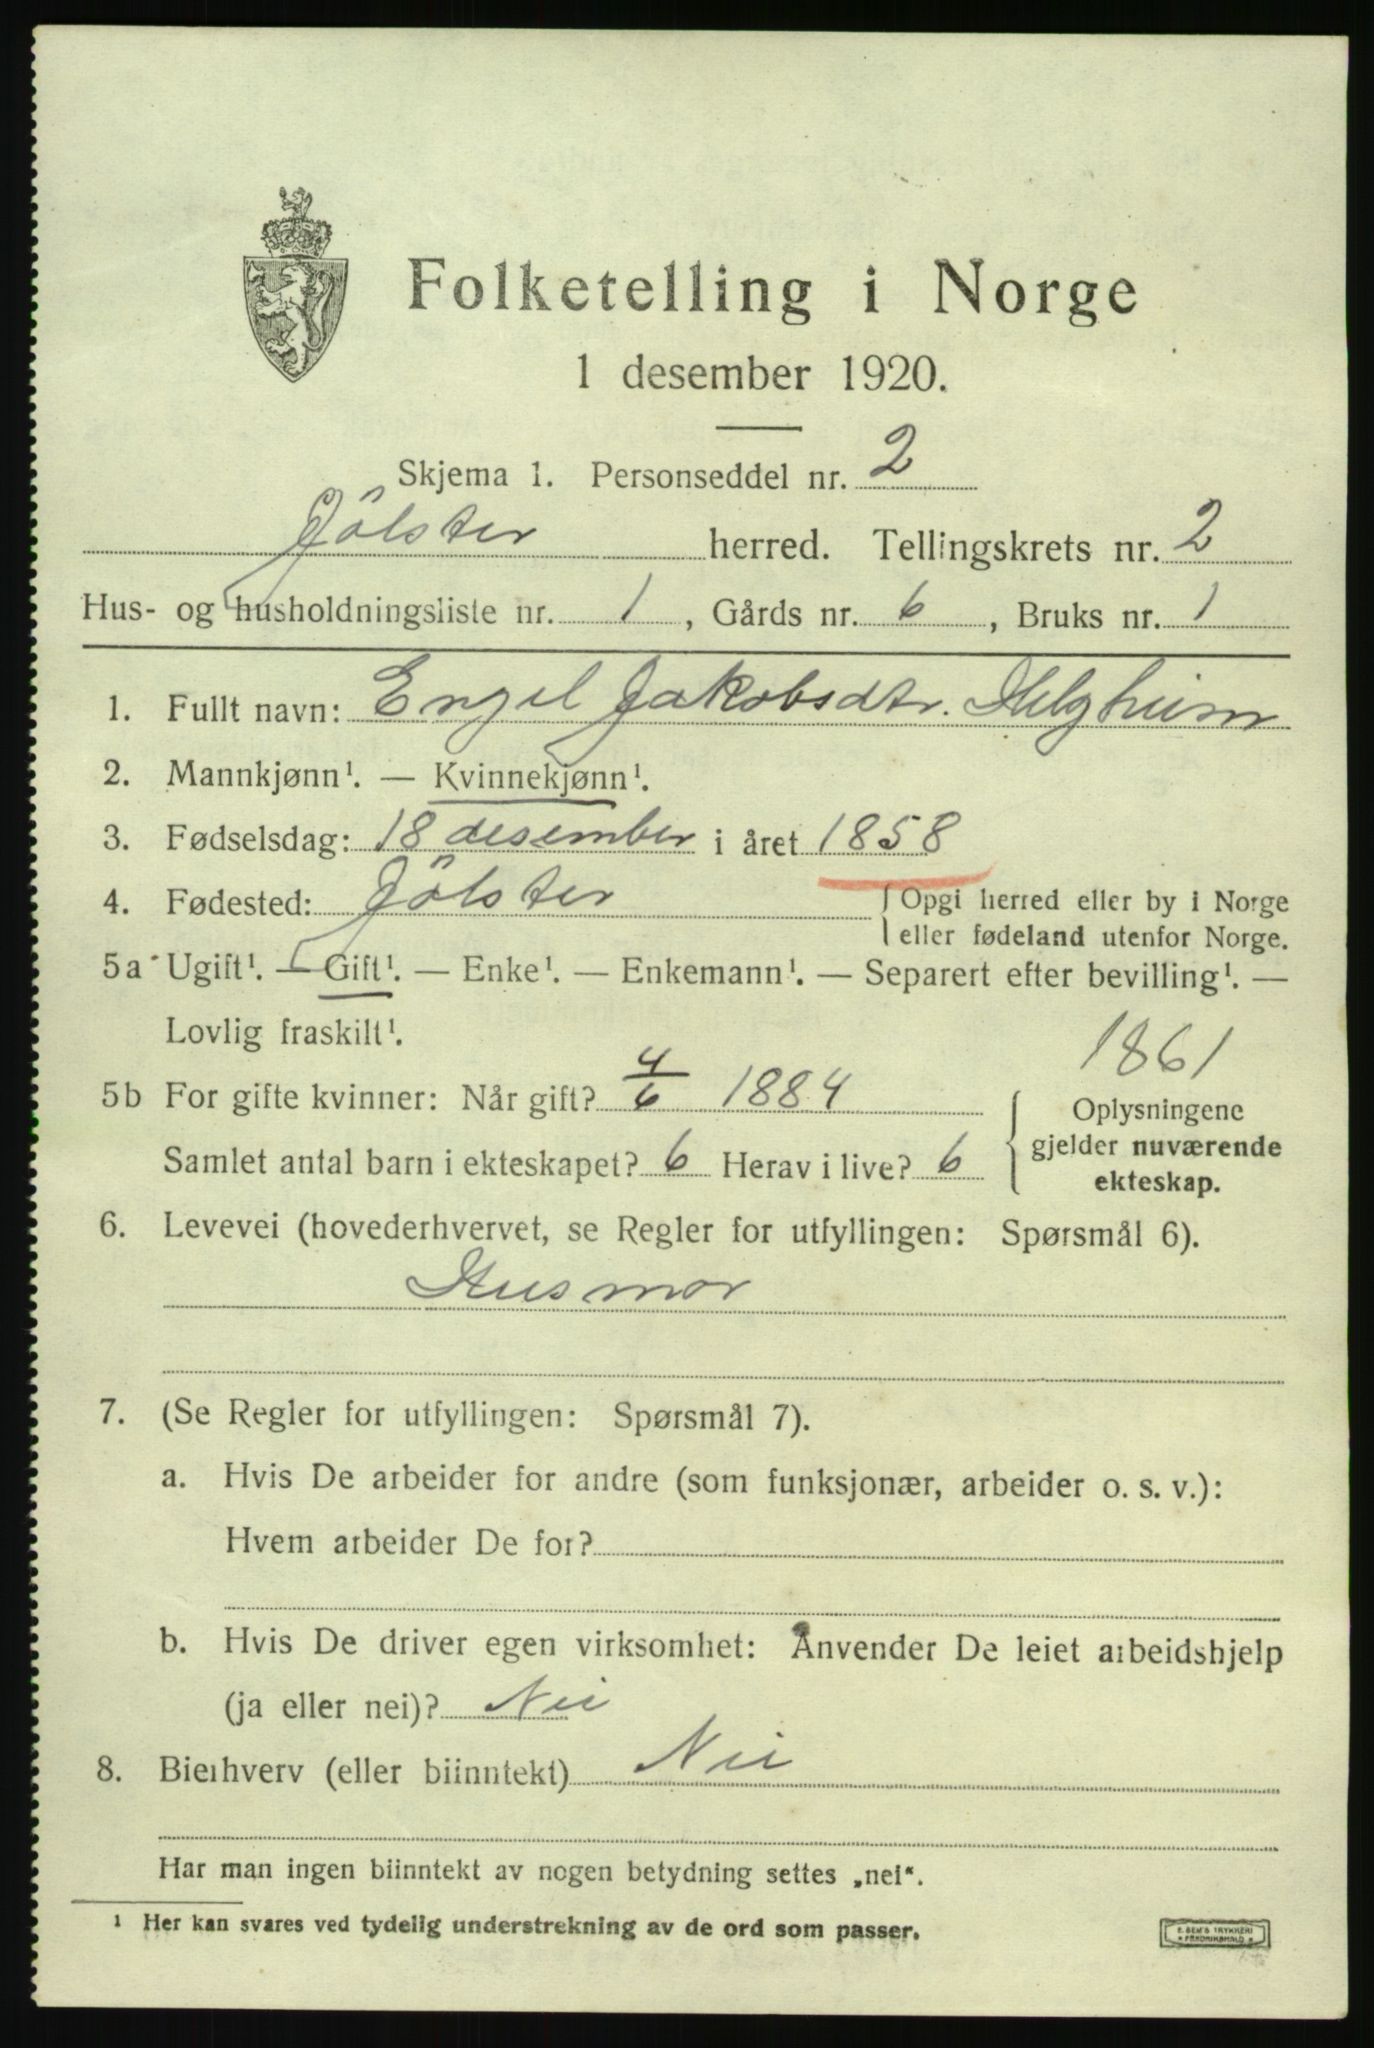 Folketelling i Norge
1 desember 1920.
Skjema 1. Personseddel nr. 2
Jölster herred. Tellingskrets nr. 2
Hus- og husholdningsliste nr. 1, Gårds nr. 6, Bruks nr. 1
1. Fullt navn: Engel Jakobsdtr. Helgheim
2. Mannkjønn¹. — Kvinnekjønn¹.
3. Fødselsdag: 18 desember i året 1858
4. Fødested: Jölster { Opgi herred eller by i Norge
eller fødeland utenfor Norge.
5a Ugift¹. — Gift¹. — Enke¹. — Enkemann¹. — Separert efter bevilling¹. —
Lovlig fraskilt¹.
1861
5b For gifte kvinner: Når gift? 4/6 1884
Samlet antal barn i ekteskapet? 6 Herav i live? 6
{ Oplysningene
gjelder nuværende
ekteskap.
6. Levevei (hovederhvervet, se Regler for utfyllingen: Spørsmål 6).
Husmor
7. (Se Regler for utfyllingen: Spørsmål 7).
a. Hvis De arbeider for andre (som funksjonær, arbeider o. s. v.):
Hvem arbeider De for?
b. Hvis De driver egen virksomhet: Anvender De leiet arbeidshjelp
(ja eller nei)? Nei
8. Bierhverv (eller biinntekt) Nei
Har man ingen biinntekt av nogen betydning settes „nei“.
¹ Her kan svares ved tydelig understrekning av de ord som passer.
E. SEM'S TRYKKERI
FREDRIKSHALD